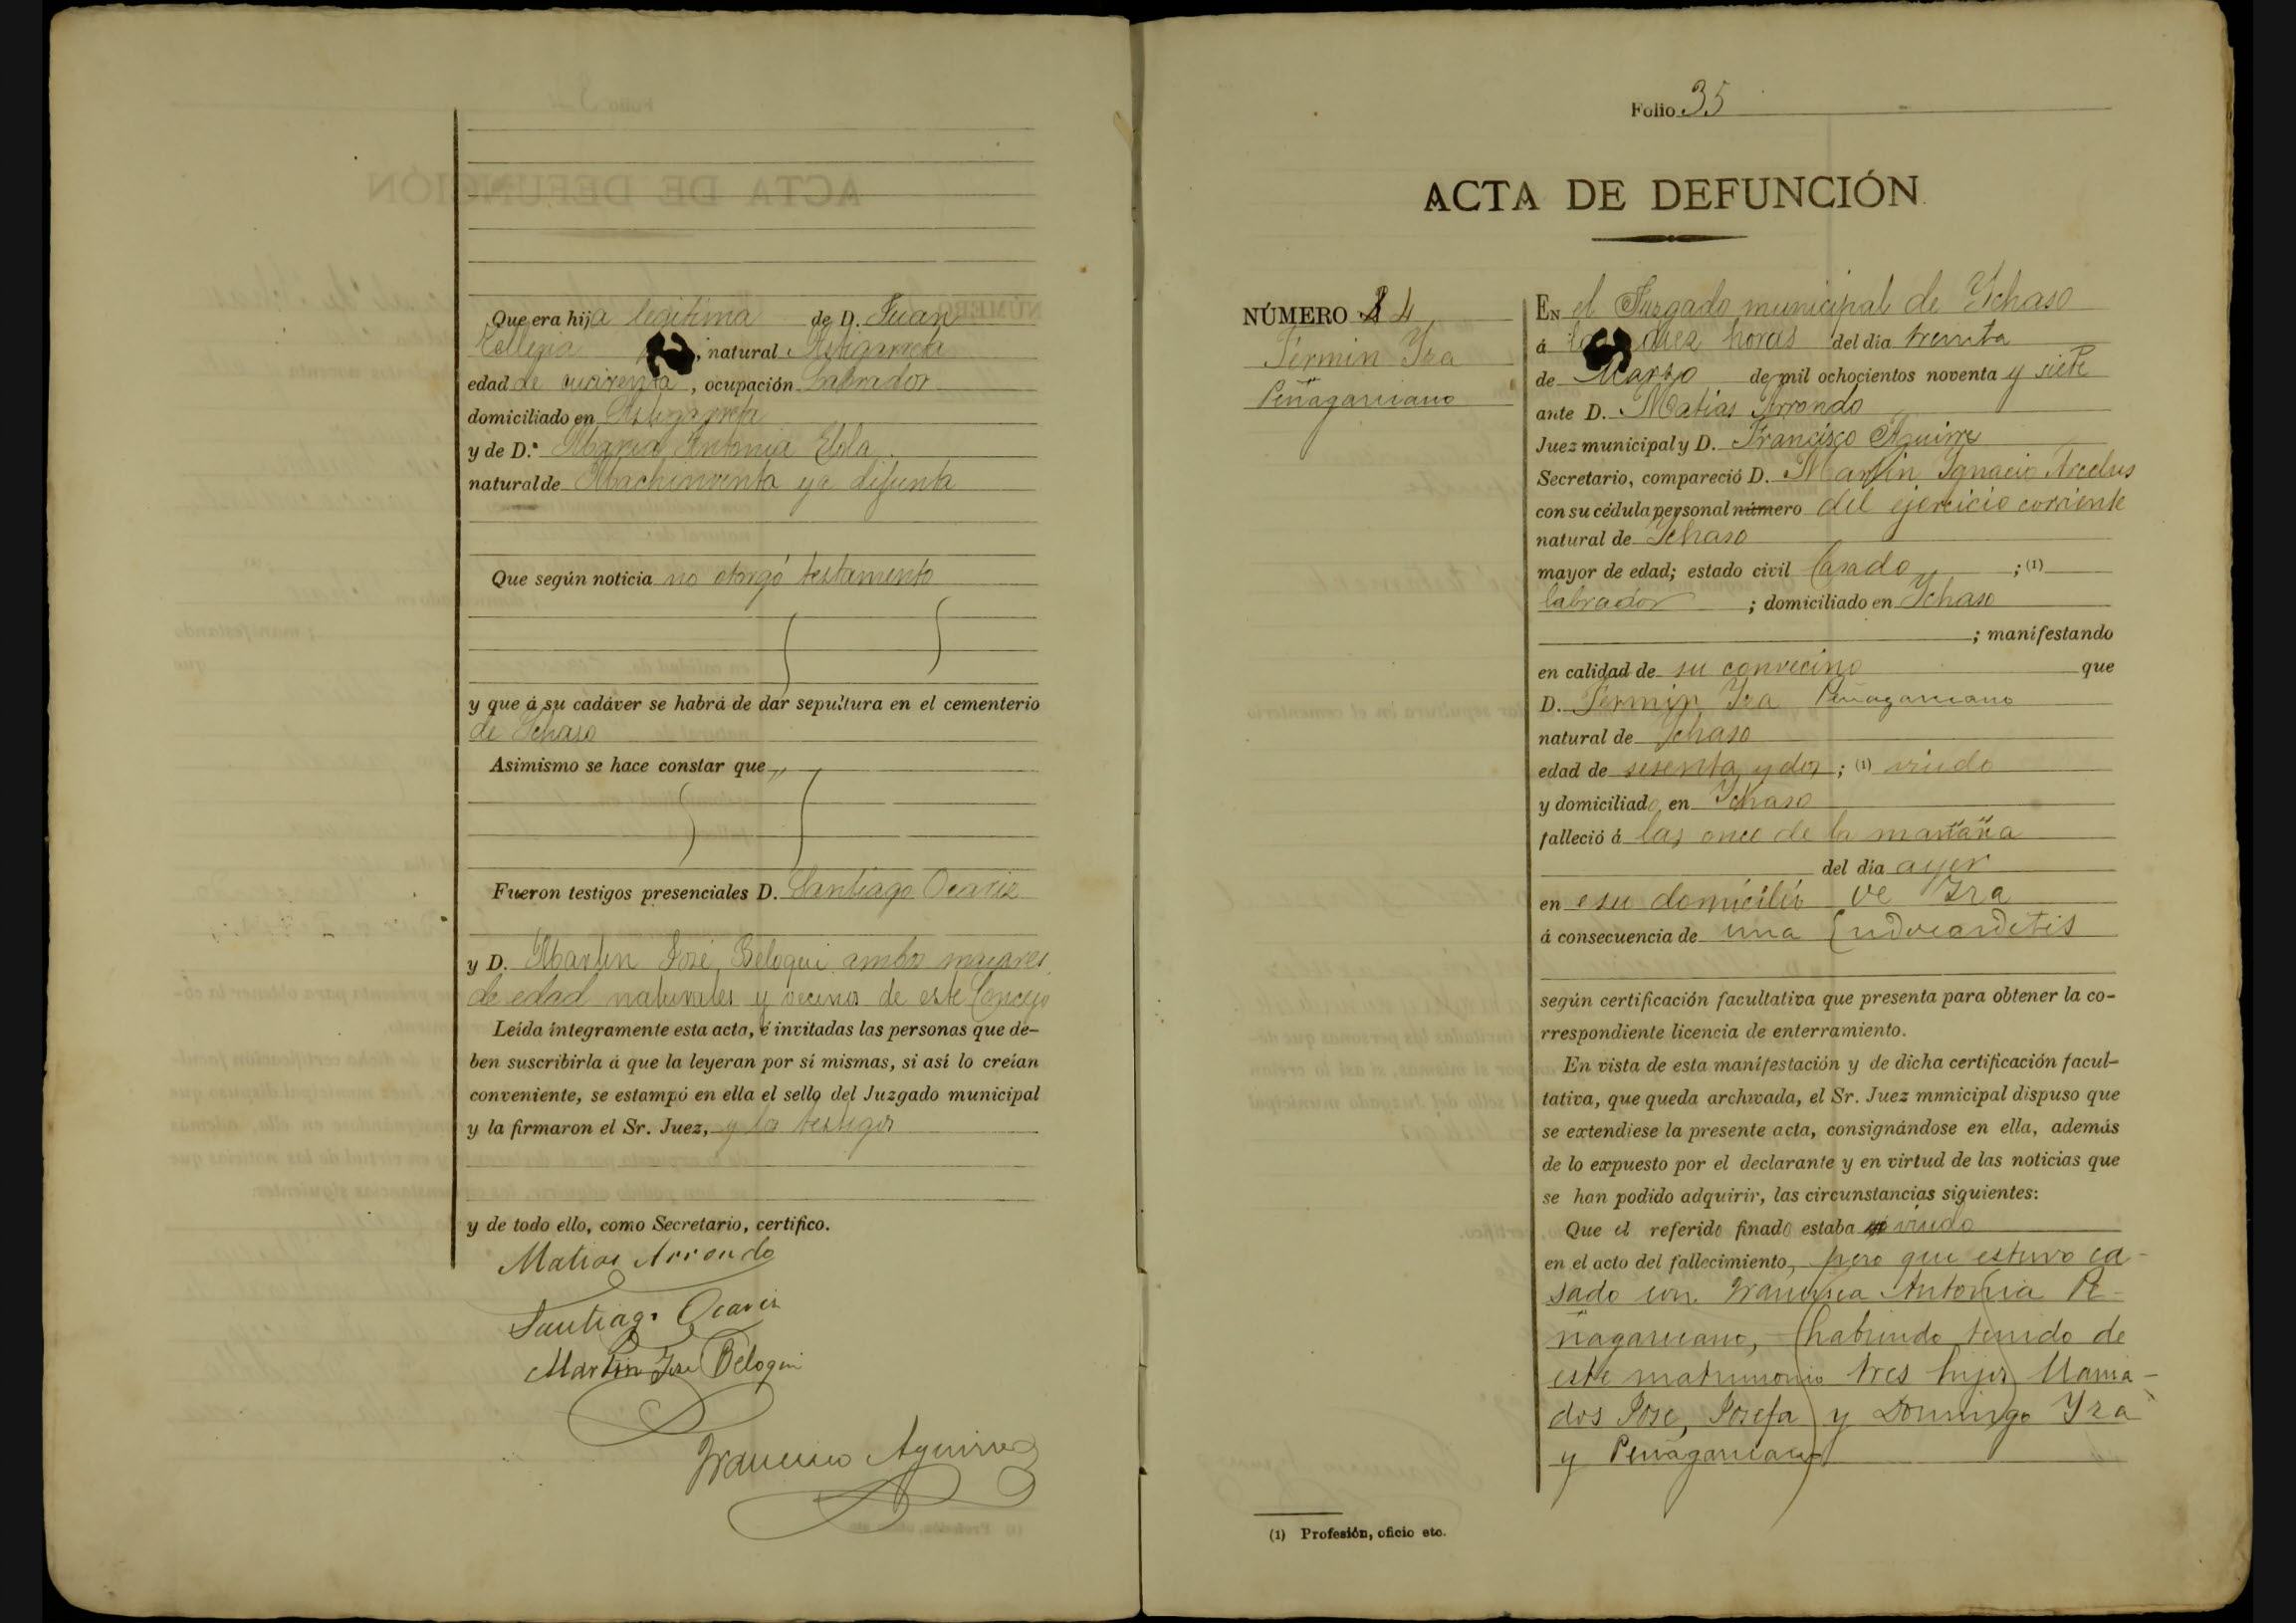 Que era hija legitima de D. Juan
Tellería, natural Astigarreta
edad de cuarenta, ocupación Labrador
domiciliado en Astigarreta
y de D.ª Maria Antonia Elola
natural de Machinventa ya difunta
Que según noticia no otorgó testamento
y que á su cadáver se habrá de dar sepultura en el cementerio
de Ichaso
Asimismo se hace constar que „
Fueron testigos presenciales D. Santiago Ocariz
y D. Martin José Beloqui ambos mayores
de edad naturales y vecinos de este Concejo
Leída íntegramente esta acta, é invitadas las personas que de-
ben suscribirla á que la leyeran por sí mismas, si así lo creían
conveniente, se estampó en ella el sello del Juzgado municipal
y la firmaron el Sr. Juez, y los testigos
y de todo ello, como Secretario, certifico.
Matias Arrondo
Santiago Ocariz
Martin José Beloqui
Francisco Aguirre
Folio 35
ACTA DE DEFUNCIÓN
NÚMERO 4
Fermin Yza
Peñagaricano
En el Juzgado municipal de Ychaso
á las diez horas del dia treinta
de Marzo de mil ochocientos noventa y siete
ante D. Matías Arrondo
Juez municipal y D. Francisco Aguirre
Secretario, compareció D. Martin Ygnacio Arcelus
con su cédula personal número del ejercicio corriente
natural de Ychaso
mayor de edad; estado civil Casado ; (1)
labrador ; domiciliado en Ychaso
; manifestando
en calidad de su convecino que
D. Fermin Yza Peñagaricano
natural de Ychaso
edad de sesenta y dos ; (1) viudo
y domiciliado en Ychaso
falleció á las once de la mañana
del dia ayer
en su domicilio de Yza
á consecuencia de una Endocarditis
según certificación facultativa que presenta para obtener la co-
rrespondiente licencia de enterramiento.
En vista de esta manifestación y de dicha certificación facul-
tativa, que queda archivada, el Sr. Juez municipal dispuso que
se extendiese la presente acta, consignándose en ella, además
de lo expuesto por el declarante y en virtud de las noticias que
se han podido adquirir, las circunstancias siguientes:
Que el referido finado estaba viudo
en el acto del fallecimiento, pero que estuvo ca-
sado con Francisca Antonia Pe-
ñagaricano, habiendo tenido de
este matrimonio tres hijos llama-
dos José, Josefa y Domingo Yza
y Peñagaricano
(1) Profesión, oficio etc.